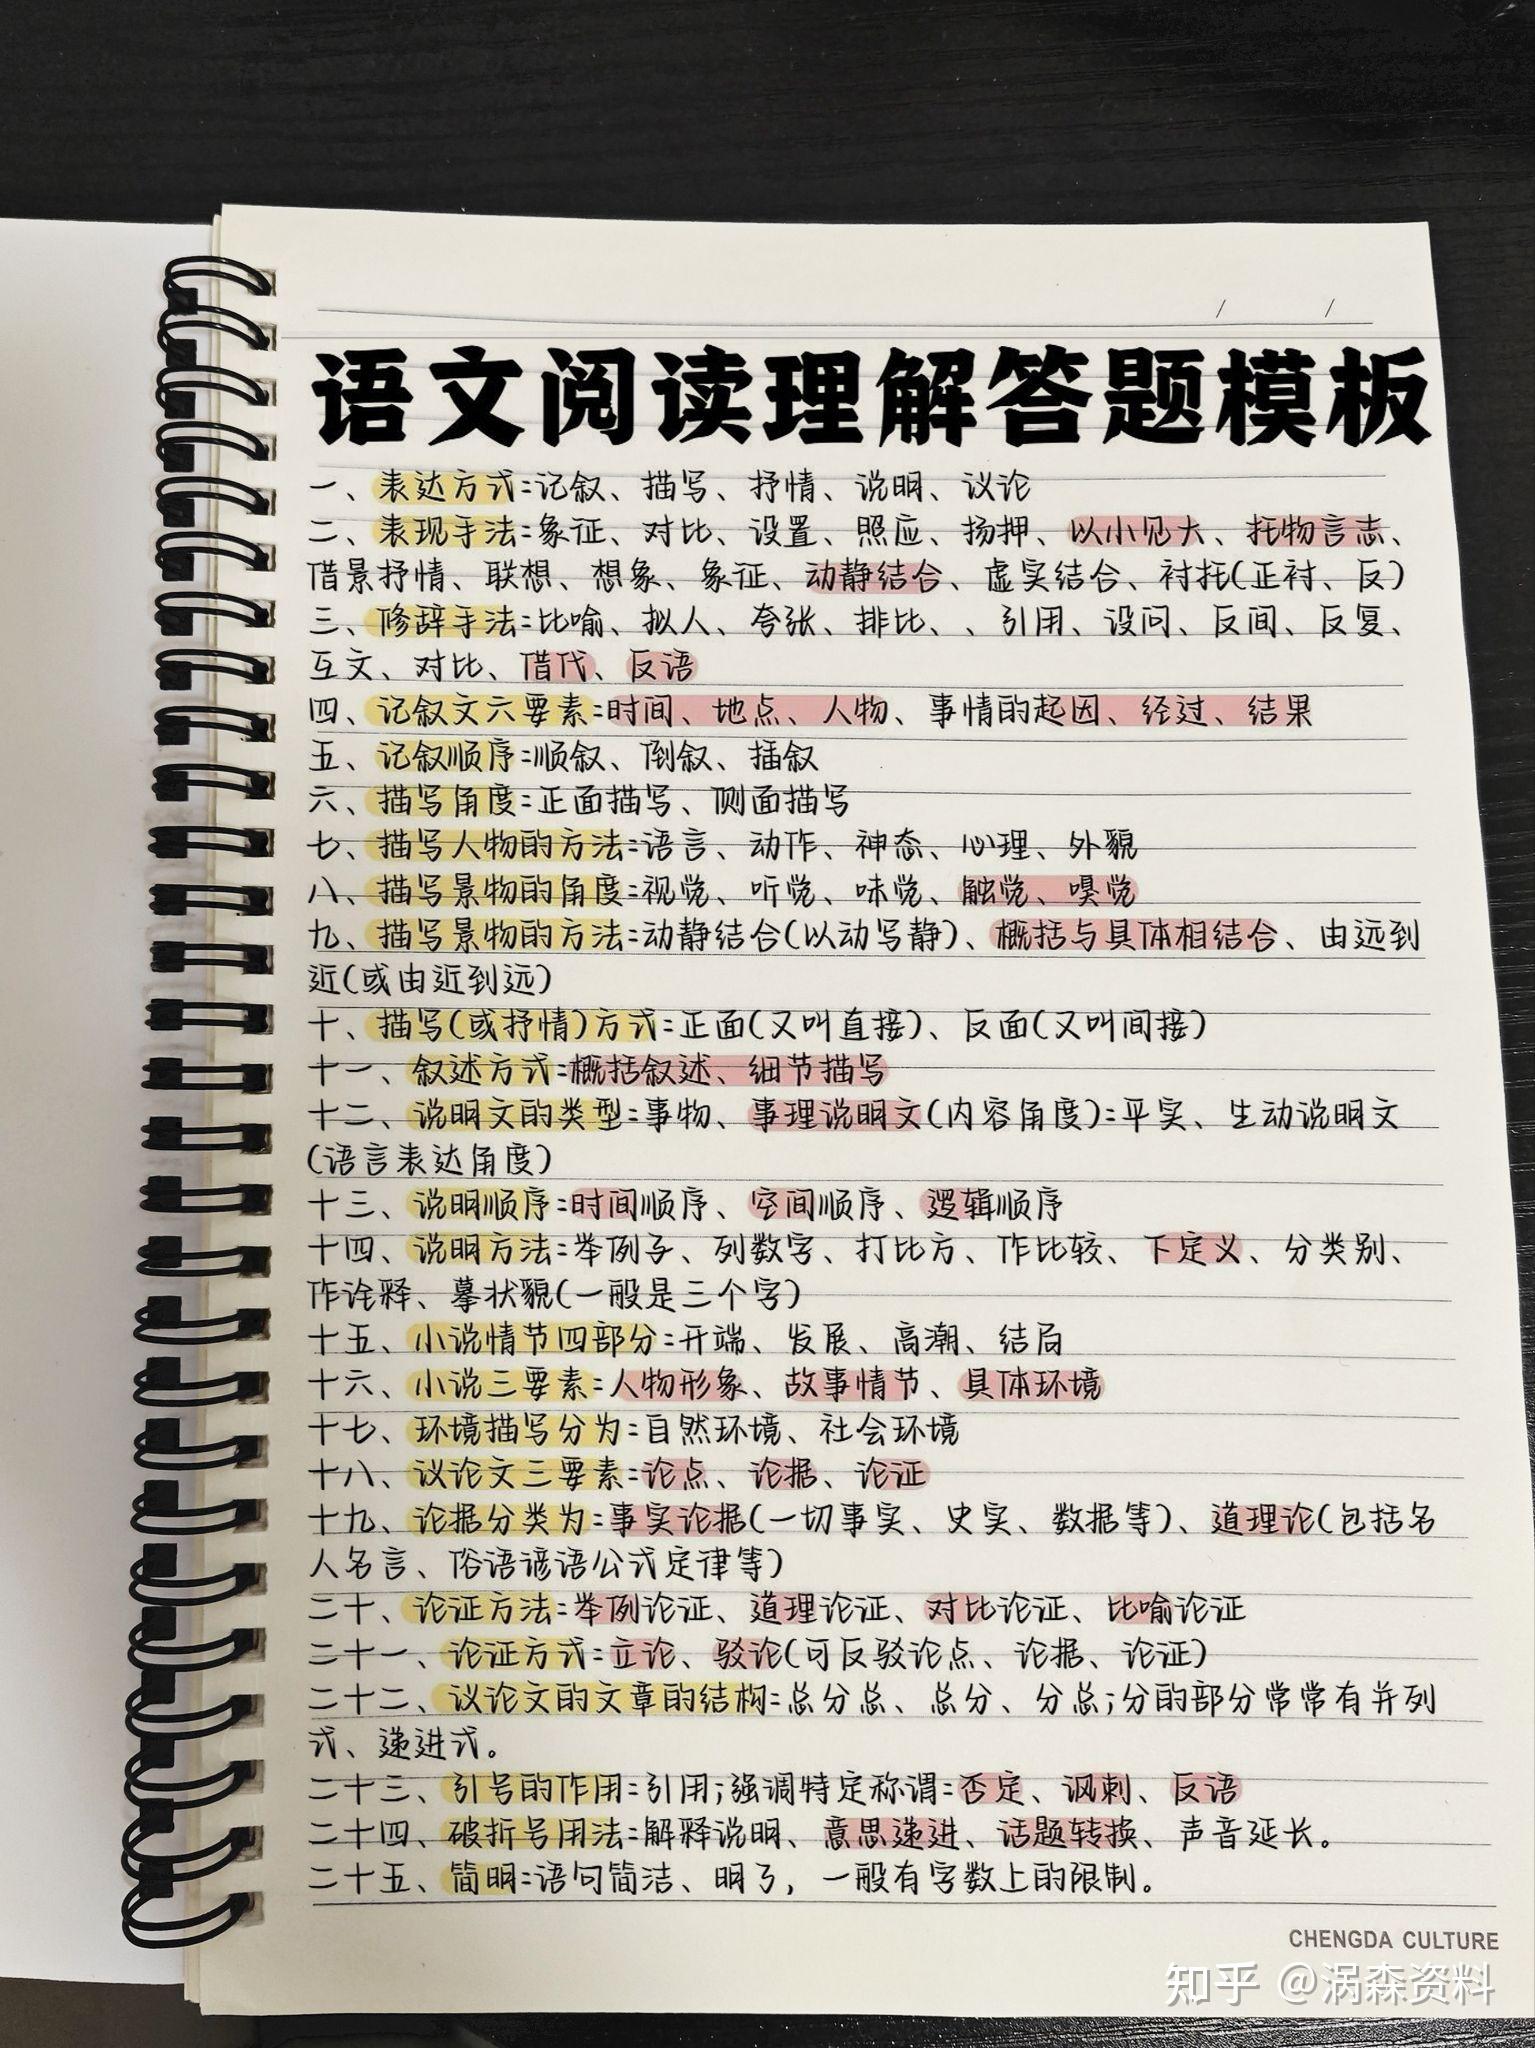 / /
语文阅读理解答题模板
一、表达方式:记叙、描写、抒情、说明、议论
二、表现手法:象征、对比、设置、照应、扬押、以小见大、托物言志、
借景抒情、联想、想象、象征、动静结合、虚实结合、衬托(正衬、反)
三、修辞手法:比喻、拟人、夸张、排比、、引用、设问、反间、反复、
互文、对比、借代、反语
四、记叙文六要素:时间、地点、人物、事情的起因、经过、结果
五、记叙顺序:顺叙、倒叙、插叙
六、描写角度:正面描写、侧面描写
七、描写人物的方法:语言、动作、神态、心理、外貌
八、描写景物的角度:视觉、听觉、味觉、触觉、嗅觉
九、描写景物的方法:动静结合(以动写静)、概括与具体相结合、由远到
近(或由近到远)
十、描写(或抒情)方式:正面(又叫直接)、反面(又叫间接)
十一、叙述方式:概括叙述、细节描写
十二、说明文的类型:事物、事理说明文(内容角度):平实、生动说明文
(语言表达角度)
十三、说明顺序:时间顺序、空间顺序、逻辑顺序
十四、说明方法:举例子、列数字、打比方、作比较、下定义、分类别、
作诠释、摹状貌(一般是三个字)
十五、小说情节四部分:开端、发展、高潮、结局
十六、小说三要素:人物形象、故事情节、具体环境
十七、环境描写分为:自然环境、社会环境
十八、议论文三要素:论点、论据、论证
十九、论据分类为:事实论据(一切事实、史实、数据等)、道理论(包括名
人名言、俗语谚语公式定律等)
二十、论证方法:举例论证、道理论证、对比论证、比喻论证
二十一、论证方式:立论、驳论(可反驳论点、论据、论证)
二十二、议论文的文章的结构:总分总、总分、分总;分的部分常常有并列
式、递进式。
二十三、引号的作用:引用;强调特定称谓:否定、讽刺、反语
二十四、破折号用法:解释说明、意思递进、话题转换、声音延长。
二十五、简明:语句简洁、明了,一般有字数上的限制。
CHENGDA CULTURE
知乎 @涡森资料